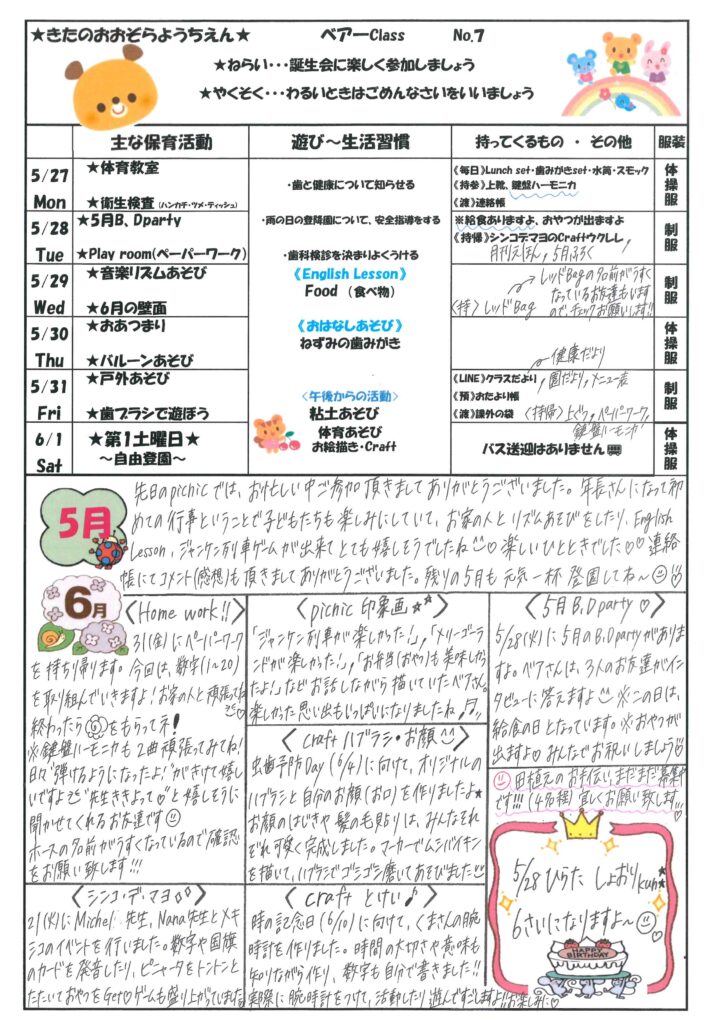 ★きたのおおぞらようちえん★　ベアーClass　No.7
★ねらい・・・誕生会に楽しく参加しましょう
★やくそく・・・わるいときはごめんなさいをいいましょう
主な保育活動　遊び～生活習慣　持ってくるもの ・ その他　服装
5/27 Mon
★体育教室
★衛生検査(ハンカチ・ツメ・ティッシュ)
・歯と健康について知らせる
《毎日》Lunch set・歯みがきset・水筒・スモック
《持参》上靴、鍵盤ハーモニカ
《渡》連絡帳
体操服
5/28 Tue
★5月B、Dparty
★Play room(ペーパーワーク)
・雨の日の登降園について、安全指導をする
・歯科検診を決まりよくうける
※給食ありますよ、おやつが出ますよ
《持帰》シンコデマヨのCraftウクレレ,
月刊えほん,5月ふろく
制服
5/29 Wed
★音楽リズムあそび
★6月の壁面
《English Lesson》
Food （食べ物）
レッドBagの名前がうすく
なっているお友達もいます
ので、チェックお願いします!!
〈持〉レッドBag
制服
5/30 Thu
★おあつまり
★バルーンあそび
《おはなしあそび》
ねずみの歯みがき
健康だより
体操服
5/31 Fri
★戸外あそび
★歯ブラシで遊ぼう
〈午後からの活動〉
粘土あそび
体育あそび
お絵描き・Craft
《LINE》クラスだより,園だより,メニュー表
《預》おたより帳
《渡》課外の袋
〈持帰〉上ぐつ,ペーパーワーク,
鍵盤ハーモニカ
制服
6/1 Sat
★第1土曜日★
～自由登園～
バス送迎はありません
体操服
5月
先日のpicnicでは、お忙しい中ご参加頂きましてありがとうございました。年長さんになって初
めての行事ということで子どもたちも楽しみにしていて、お家の人とリズムあそびをしたり、English
Lesson、ジャンケン列車ゲームが出来てとても嬉しそうでしたね♡楽しいひとときでした♡♡連絡
帳にてコメント(感想)も頂きましてありがとうございました。残りの5月も元気一杯登園してね～
6月
〈Home work!!〉
31(金)にペーパーワーク
を持ち帰ります。今回は、数字(1～20)
を取り組んでいきますよ!お家の人と頑張ってね
終わったら をもらってネ!
※鍵盤ハーモニカも2曲頑張ってみてね!
日に"弾けるようになったよ!"がきけて嬉し
いですよ "先生ききよって♡"と嬉しそうに
聞かせてくれるお友達です
ホースの名前がうすくなっているので確認
をお願い致します!!!
〈シンコ・デ・マヨ〉
21(火)にMichel先生,Nana先生とメキ
シコのイベントを行いました。数字や国旗
のカードを発音したり、ピニャータをトントンと
たたいておやつをGet♡ゲームも盛り上がっていました
〈picnic印象画★★〉
「ジャンケン列車が楽しかった!」,「メリーゴーラ
ンドが楽しかった!」,「お弁当(おやつ)も美味しかっ
たよ!」などお話しながら描いていたベアさん。
楽しかった思い出もいっぱいになりましたね♪♬
〈craftハブラシ・お顔〉
虫歯予防Day(6/4)に向けて、オリジナルの
ハブラシと自分のお顔(お口)を作りましたよ★
お顔のはじきや髪の毛貼りは、みんなそれ
ぞれ可愛く完成しました。マーカーでムシバイキン
を描いて、ハブラシでゴシゴシ磨いてあそびました
〈craftとけい♪〉
時の記念日(6/10)に向けて、くまさんの腕
時計を作りました。時間の大切さや意味も
知りながら作り、数字も自分で書きました!!
実際に腕時計をつけて、活動したり遊んですごしますよ!!お楽しみに♡
〈5月B.Dparty♡〉
5/28(火)に5月のB.Dpartyがありま
すよ。ベアさんは、3人のお友達がイン
タビューに答えますよ ※この日は、
給食の日となっています。※おやつが
出ますよ♡みんなでお祝いしましょう♡
田植元のお手伝い、まだまだ募集中
です!!!(4名程)宜しくお願い致します
5/28 ひらた しょおりkun★
6さいになりますよ～♡
HAPPY BIRTHDAY